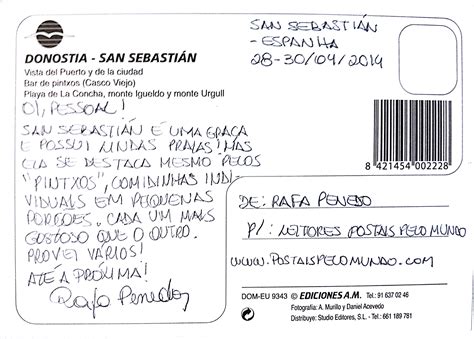 DONOSTIA - SAN SEBASTIÁN
Vista del Puerto y de la ciudad
Bar de pintxos (Casco Viejo)
Playa de La Concha, monte Igueldo y monte Urgull
OI, PESSOAL!
SAN SEBASTIÁN É UMA GRAÇA
E POSSUI LINDAS PRAIAS! MAS
ELA SE DESTACA MESMO PELOS
"PINTXOS", COMIDINHAS INDI-
VIDUAIS EM PEQUENAS
PORÇÕES, CADA UM MAIS
GOSTOSO QUE O OUTRO.
PROVEI VÁRIOS!
ATÉ A PRÓXIMA!
Rafa Penedo
SAN SEBASTIÁN
- ESPANHA
28-30/04/2014
8 421454 002228
DE: RAFA PENEDO
P/: LEITORES POSTAIS PELO MUNDO
WWW.POSTAISPELOMUNDO.COM
DOM-EU 9343 © EDICIONES A.M. Tel.: 91 637 02 46
Fotografía: A. Murillo y Daniel Acevedo
Distribuye: Studio Editores, S.L. - Tel.: 661 189 781